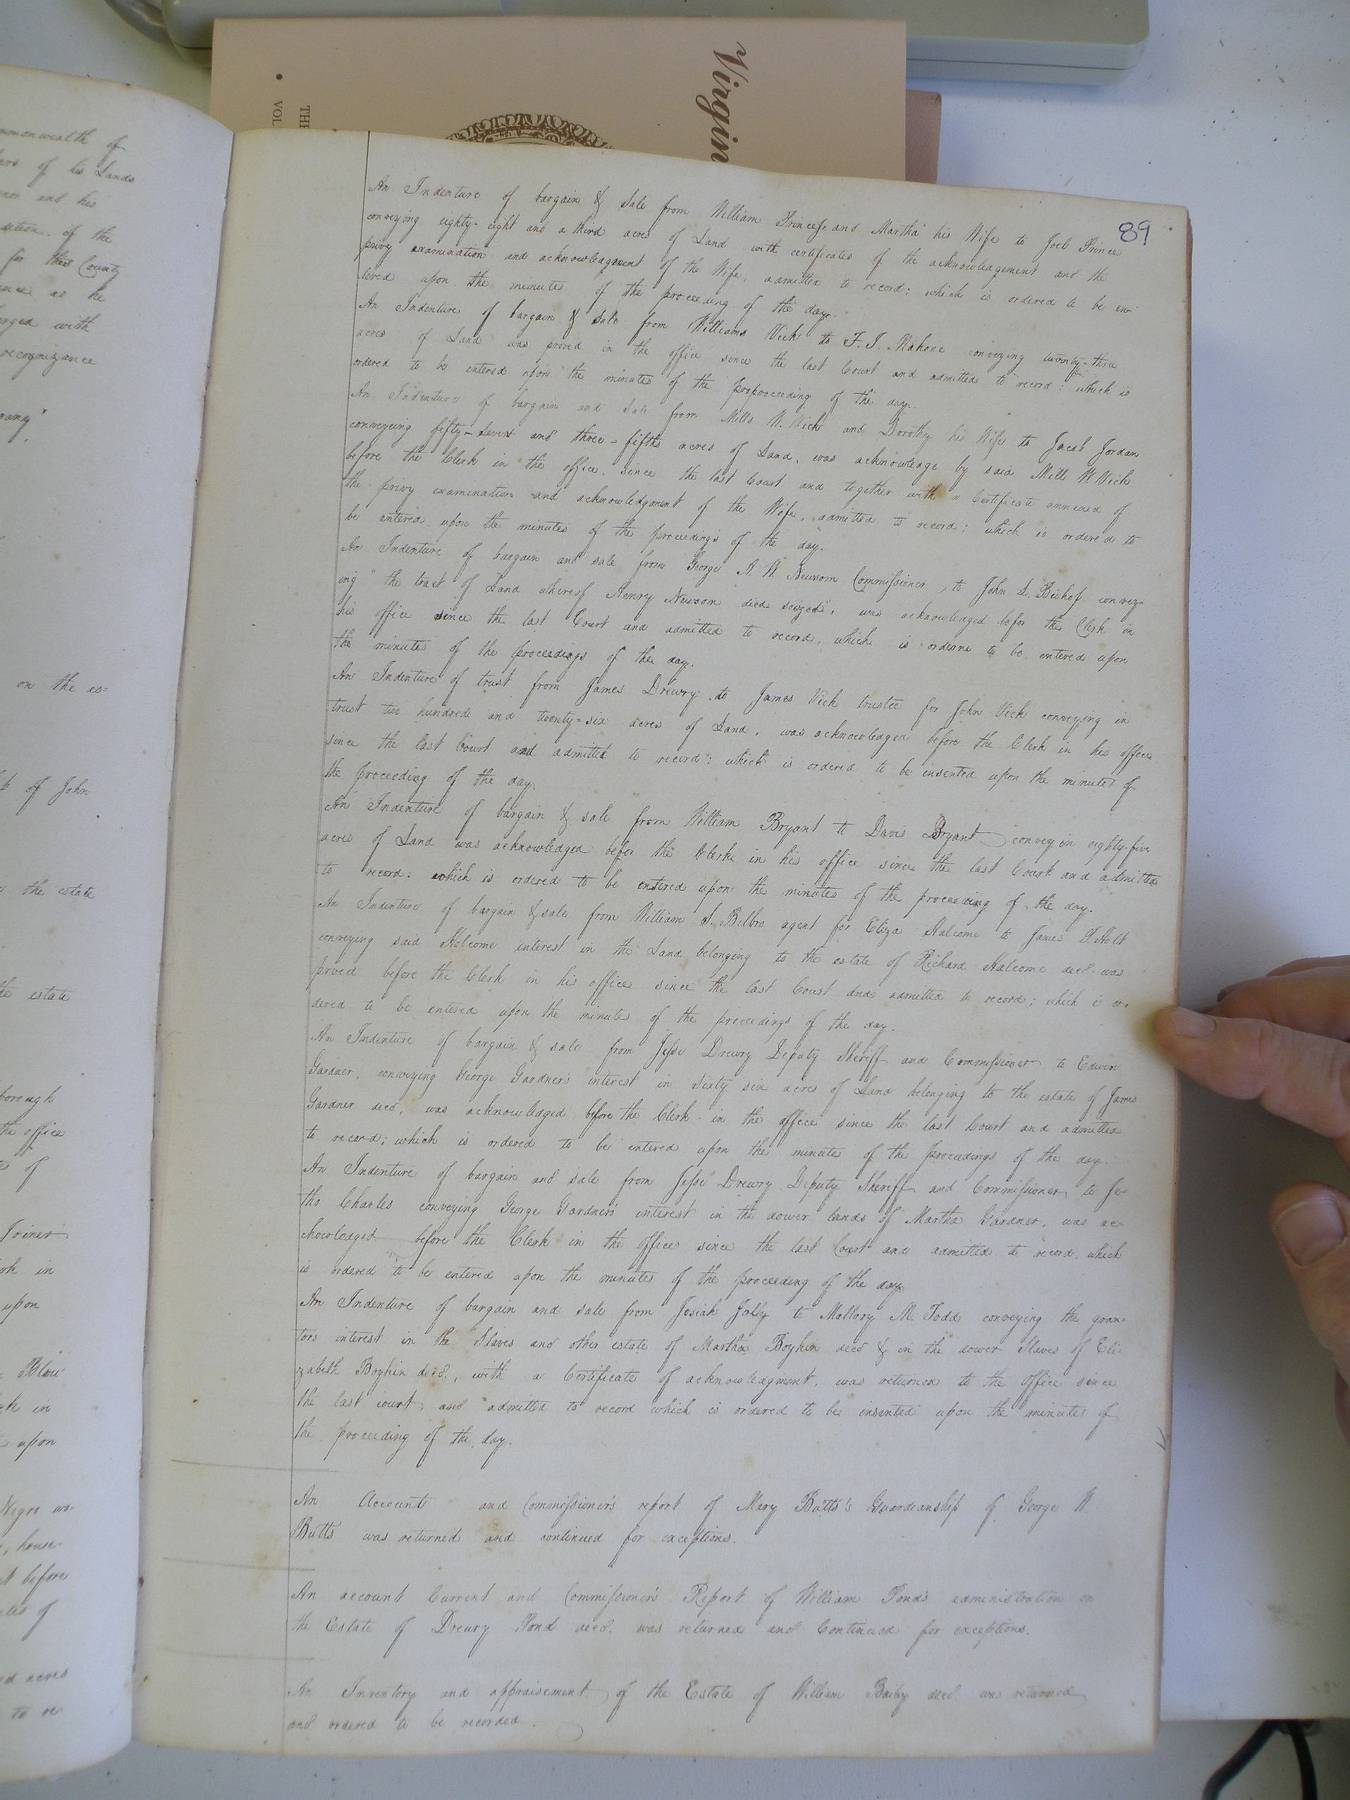 Virgin
THE
VOL
89
mmonwealth of
of his Lands
and his
of the
for this County
as he
with
recognizance
on the es=
of John
the estate
the estate
the office
of
Joiner
in
upon
in
upon
Negro wo=
house
before
of
acres
to re
An Indenture of bargain & Sale from William Princess and Martha his Wife to Joel Prince
conveying eighty-eight and a third acre of Land with certificates of the acknowleagement and the
privy examination and acknowleagment of the Wife, admitted to record; which is ordered to be en
tered upon the minutes of the proceeding of the day.
An Indenture of bargain & sale from Williams Vick to F. J. Mahone conveying twenty-three
acres of Land was proved in the office since the last Court and admitted to record: which is
ordered to be entered upon the minutes of the porproceeding of the day.
An Indenture of bargain and sale from Mills W. Vick and Dorothy his Wife to Jacob Jordan
conveying fifty-seven and three-fifths acres of Land, was acknowleage by said Mills W Vick
before the Clerk in the office, since the last Court and together with a Certificate annexed of
the privy examination and acknowledgment of the Wife, admitted to record; which is ordered to
be entered upon the minutes of the proceedings of the day.
An Indenture of bargain and sale from George A. W. Newsom Commissioner, to John L. Bishop convey-
ing "the tract of Land whereof Henry Newsom died seized", was acknowledged befor the Clerk in
his office since the last Court and admitted to record, which is orderd to be entered upon
the minutes of the proceedings of the day.
An Indenture of trust from James Drewry to James Vick trustee for John Vick conveying in
trust two hundred and twenty-six acres of Land, was acknowledged before the Clerk in his office
since the last Court and admitted to record: which is ordered to be inserted upon the minutes of
the proceeding of the day.
An Indenture of bargain & sale from William Bryant to Davis Bryant conveyin eighty-five
acres of Land was acknowledged befor the Clerk in his office since the last Court and admitted
to record: which is ordered to be entered upon the minutes of the proceeding of the day.
An Indenture of bargain & sale from William S. Bilbro agent for Eliza Halcome to James D. Holt
conveying said Holcome interest in the Land belonging to the estate of Richard Halcome decd. was
proved before the Clerk in his office since the last Court and admitted to record; which is or-
dered to be entered upon the minutes of the proceedings of the day.
An Indenture of bargain & sale from Jesse Drewry Deputy Sheriff and Commissioner to Edwin
Gardner, conveying George Gardner's interest in Sixty six acres of Land belonging to the estate of James
Gardner decd. was acknowledged before the Clerk in the office since the last Court and admitted
to record; which is ordered to be entered upon the minutes of the proceedings of the day.
An Indenture of bargain and sale from Jesse Drewry Deputy Sheriff and Commissioner to Je-
tho Charles conveying George Gardner's interest in the dower lands of Martha Gardner, was ac
knowledged before the Clerk in the office since the last Court and admitted to record, which
is ordered to be entered upon the minutes of the proceeding of the day.
An Indenture of bargain and sale from Josiah Jolly to Mallory M. Todd conveying the gran-
tors interest in the Slaves and other estate of Martha Boykin decd & in the dower Slaves of Eli-
zabeth Boykin decd., with a Certificate of acknowleagment, was returned to the office since
the last court and admitted to record which is ordered to be inserted upon the minutes of
the proceeding of the day.
An Account and Commissioner's report of Mary Butts's Guardianship of George W.
Butts was returned and continued for exceptions.
An account Current and Commissioner's Report of William Pond's administration on
the Estate of Drewry Pond decd. was returned and Continued for exceptions.
An Inventory and appraisement of the Estate of William Bailey decd. was returned
and ordered to be recorded.